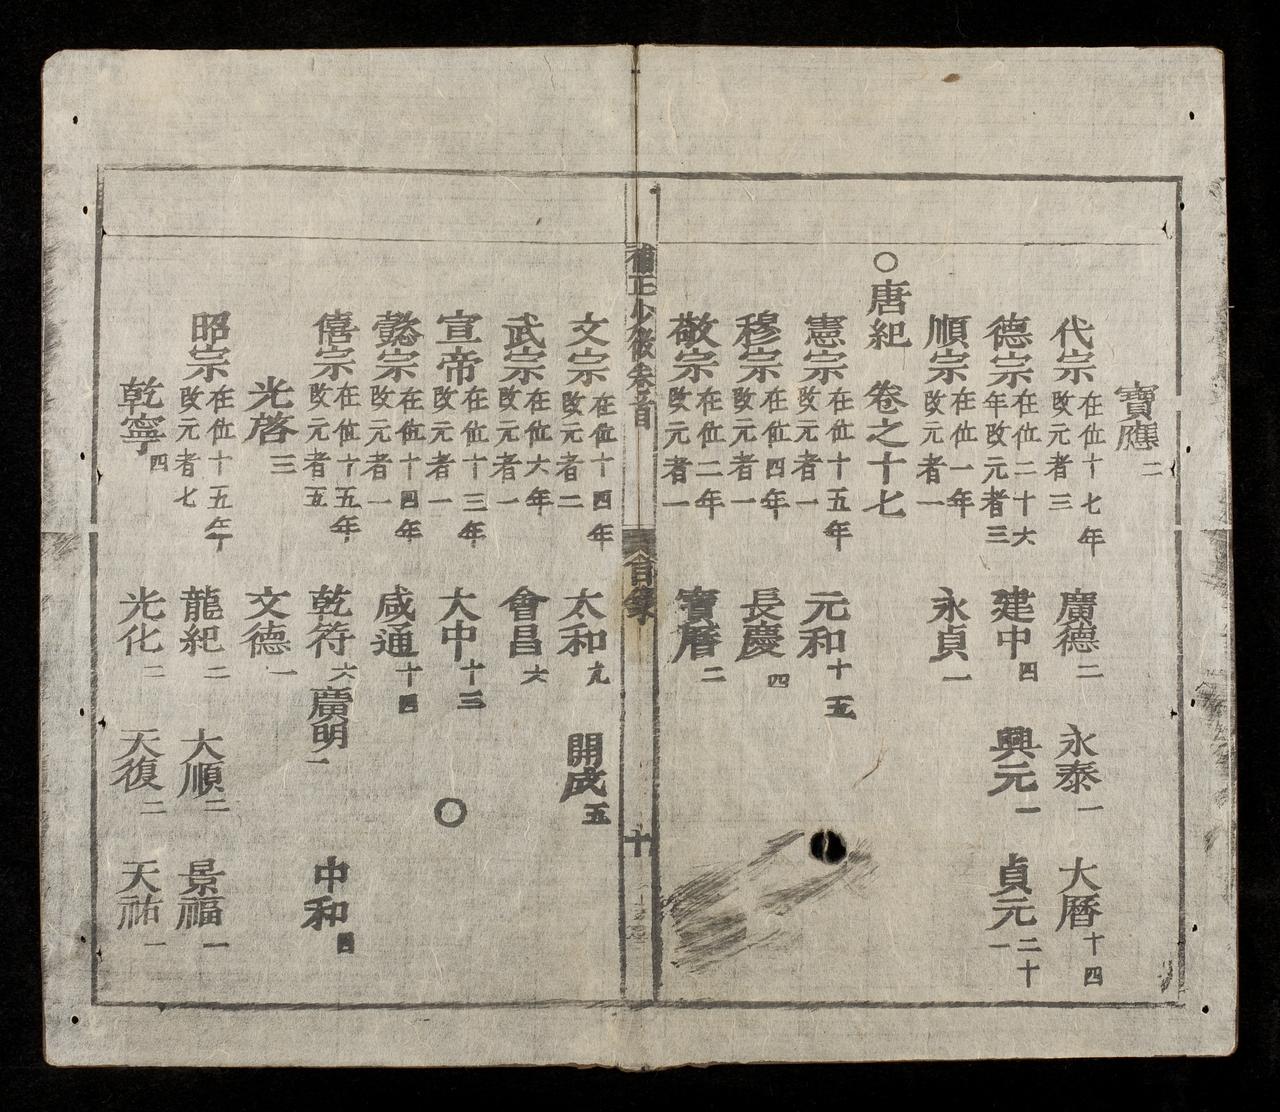 寶應二
代宗在位十七年改元者三 廣德二 永泰一 大曆十四
德宗在位二十六年改元者三 建中四 興元一 貞元二十一
順宗在位一年改元者一 永貞一
○唐紀 卷之十七
憲宗在位十五年改元者一 元和十五
穆宗在位四年改元者一 長慶四
敬宗在位二年改元者一 寶曆二
補正少微卷首 目錄 十
文宗在位十四年改元者二 太和九 開成五
武宗在位六年改元者一 會昌六
宣帝在位十三年改元者一 大中十三 ○
懿宗在位十四年改元者一 咸通十四
僖宗在位十五年改元者五 乾符六 廣明一 中和四
光啓三 文德一
昭宗在位十五年改元者七 龍紀二 大順二 景福一
乾寧四 光化二 天復二 天祐一